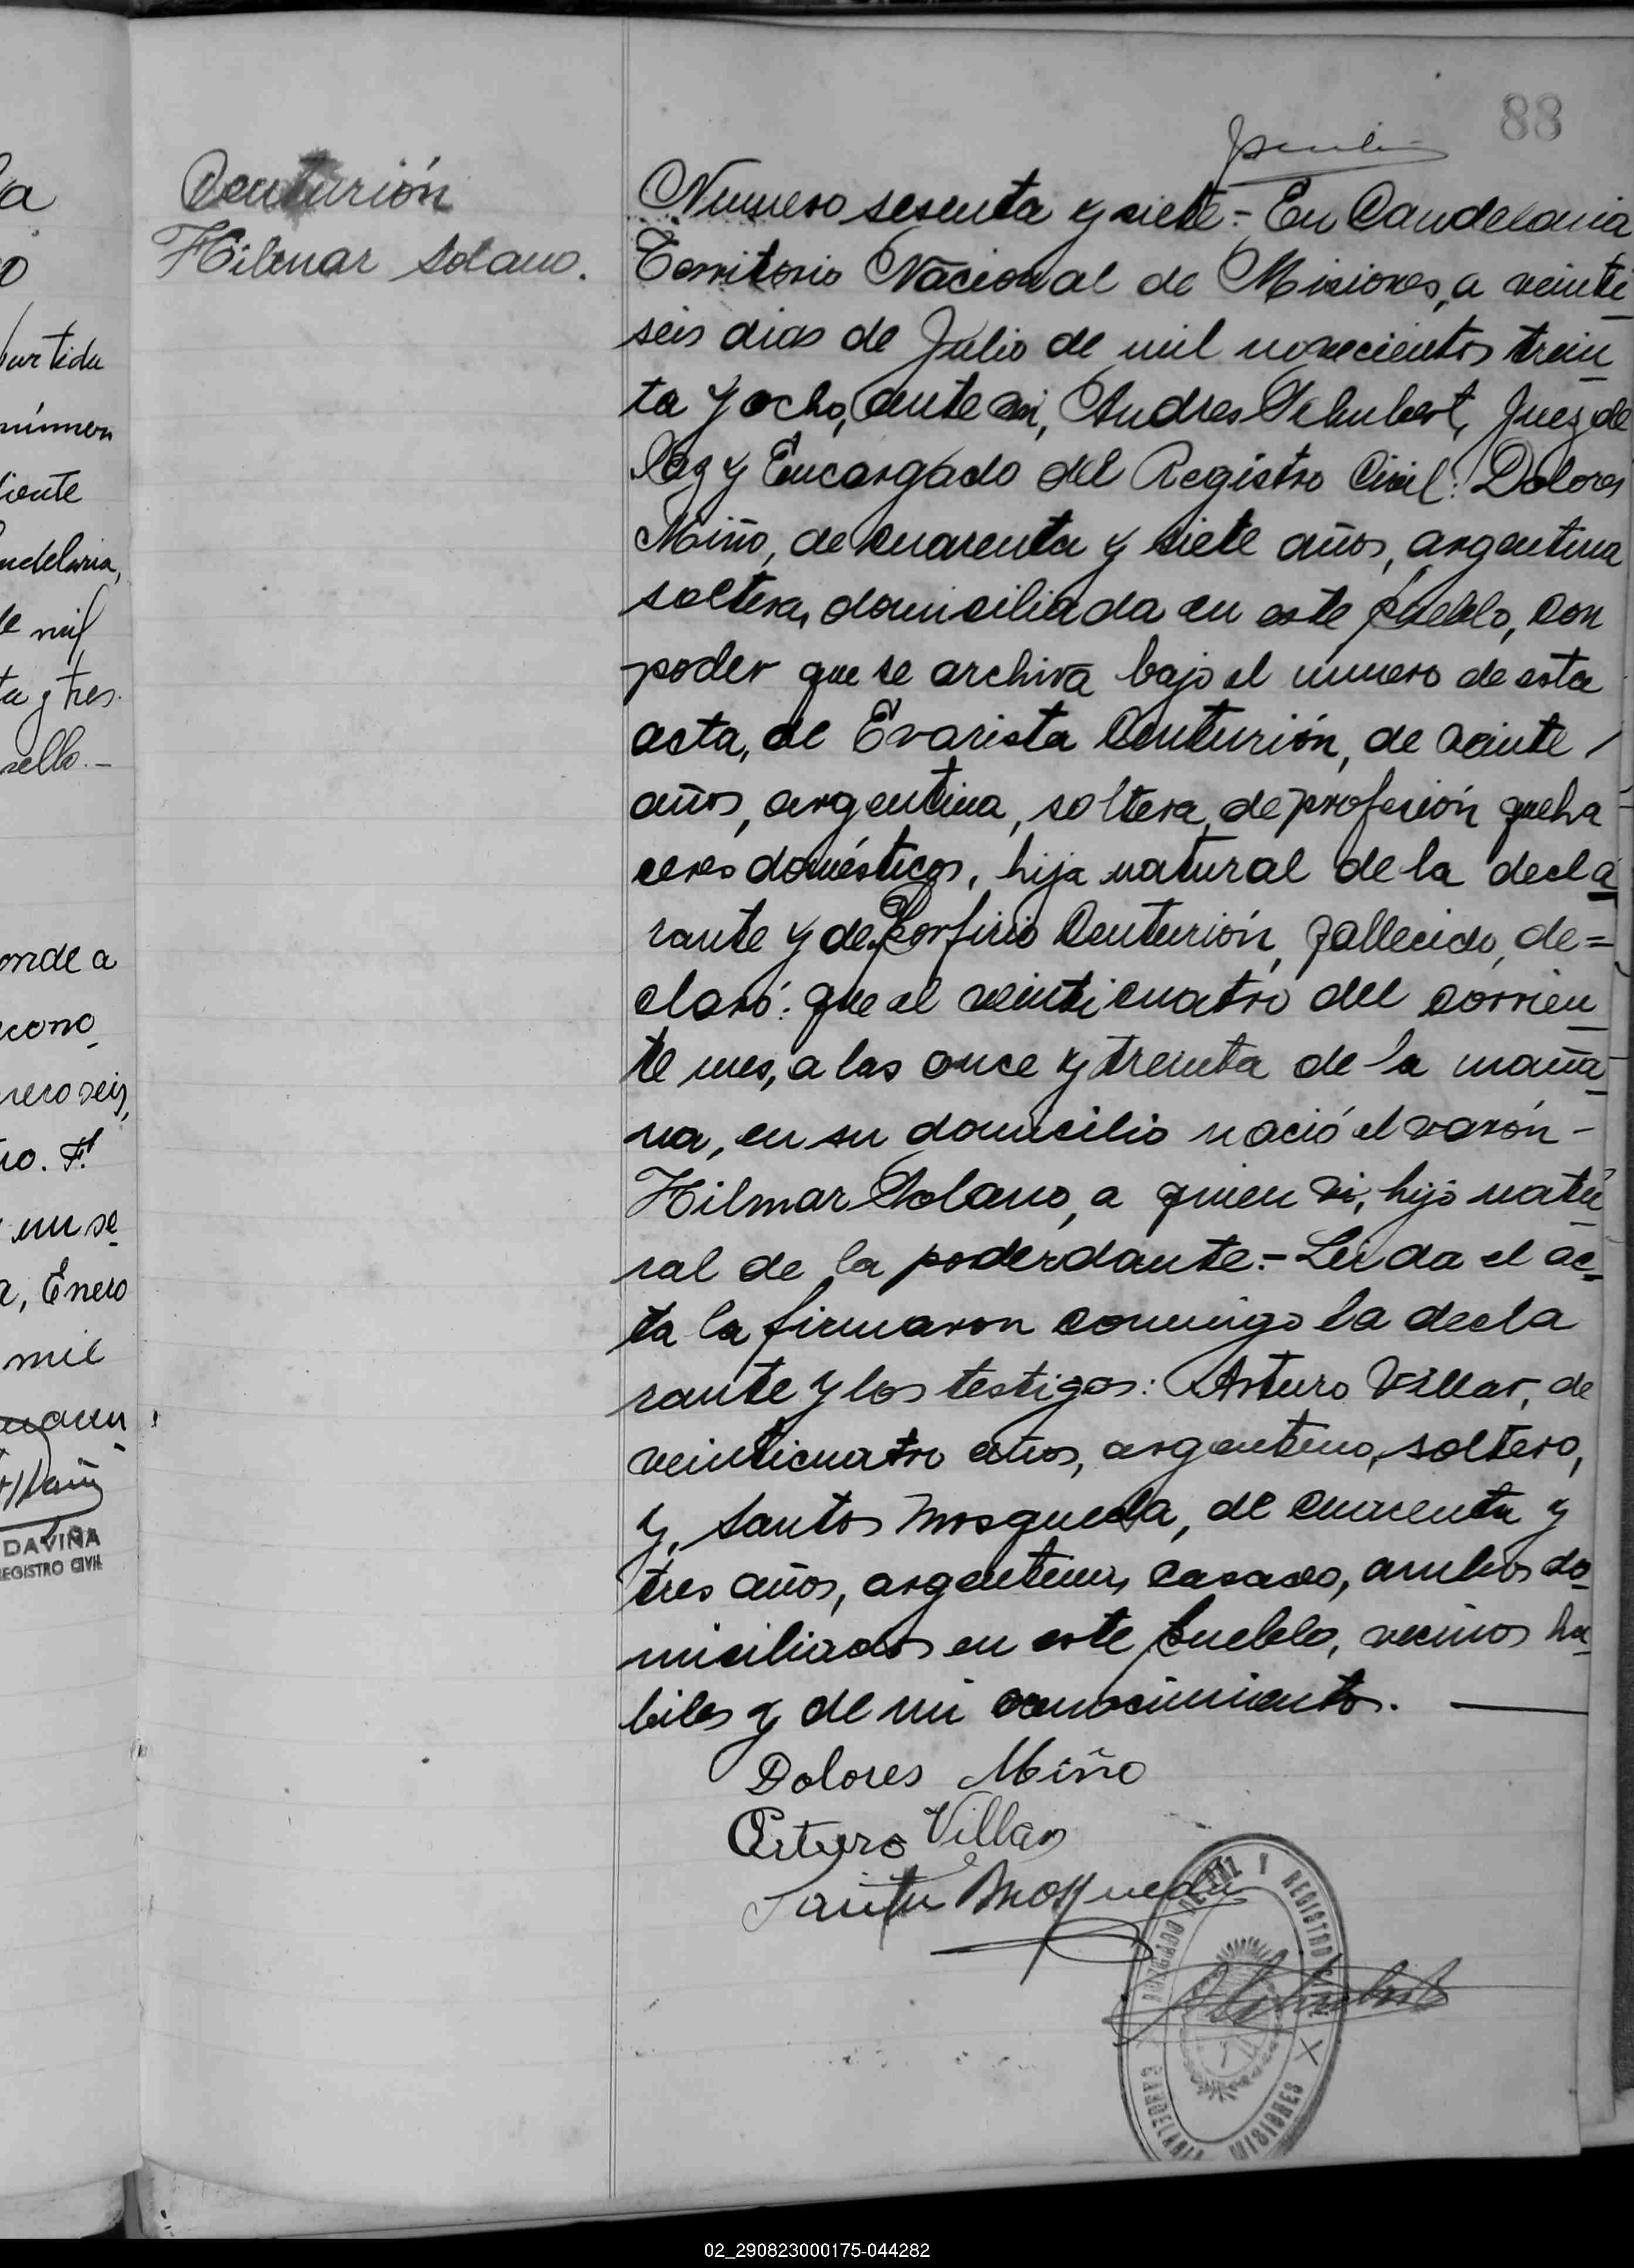 88
Centurión
Hilmar Solano.
Numero sesenta y siete.- En Candelaria
Territorio Nacional de Misiones, a veinti
seis dias de Julio de mil novecientos trein
ta y ocho, ante mi, Andres Schubert, Juez de
Paz y Encargado del Registro Civil: Dolores
Miño, de cuarenta y siete años, argentina
soltera, domiciliada en este pueblo, con
poder que se archiva bajo el numero de esta
acta, de Evarista Centurión, de veinte
años, argentina, soltera, de profesión queha
ceres domésticos, hija natural de la decla
rante y de Porfirio Centurión, fallecido, de=
claró: que el veinticuatro del corrien
te mes, a las once y treinta de la maña
na, en su domicilio nació el varón -
Hilmar Solano, a quien vi, hijo natu
ral de la poderdante.- Leida el ac
ta la firmaron conmigo la decla
rante y los testigos: Arturo Villar, de
veinticuatro años, argentino, soltero,
y, Santos Mosqueda, de cuarenta y
tres años, argentino, casado, ambos do
miciliados en este pueblo, vecinos ha
biles y de mi conocimiento.
Dolores Miño
Arturo Villar
Santos Mosqueda
JUZGADO DE PAZ Y REGISTRO CIVIL
CANDELARIA MISIONES
a
o
partida
número
ndelaria,
de mil
ta y tres.
sello.-
onde a
cono
mero seis,
no. F.
en se
a, Enero
mil
DAVIÑA
REGISTRO CIVIL
02_290823000175-044282